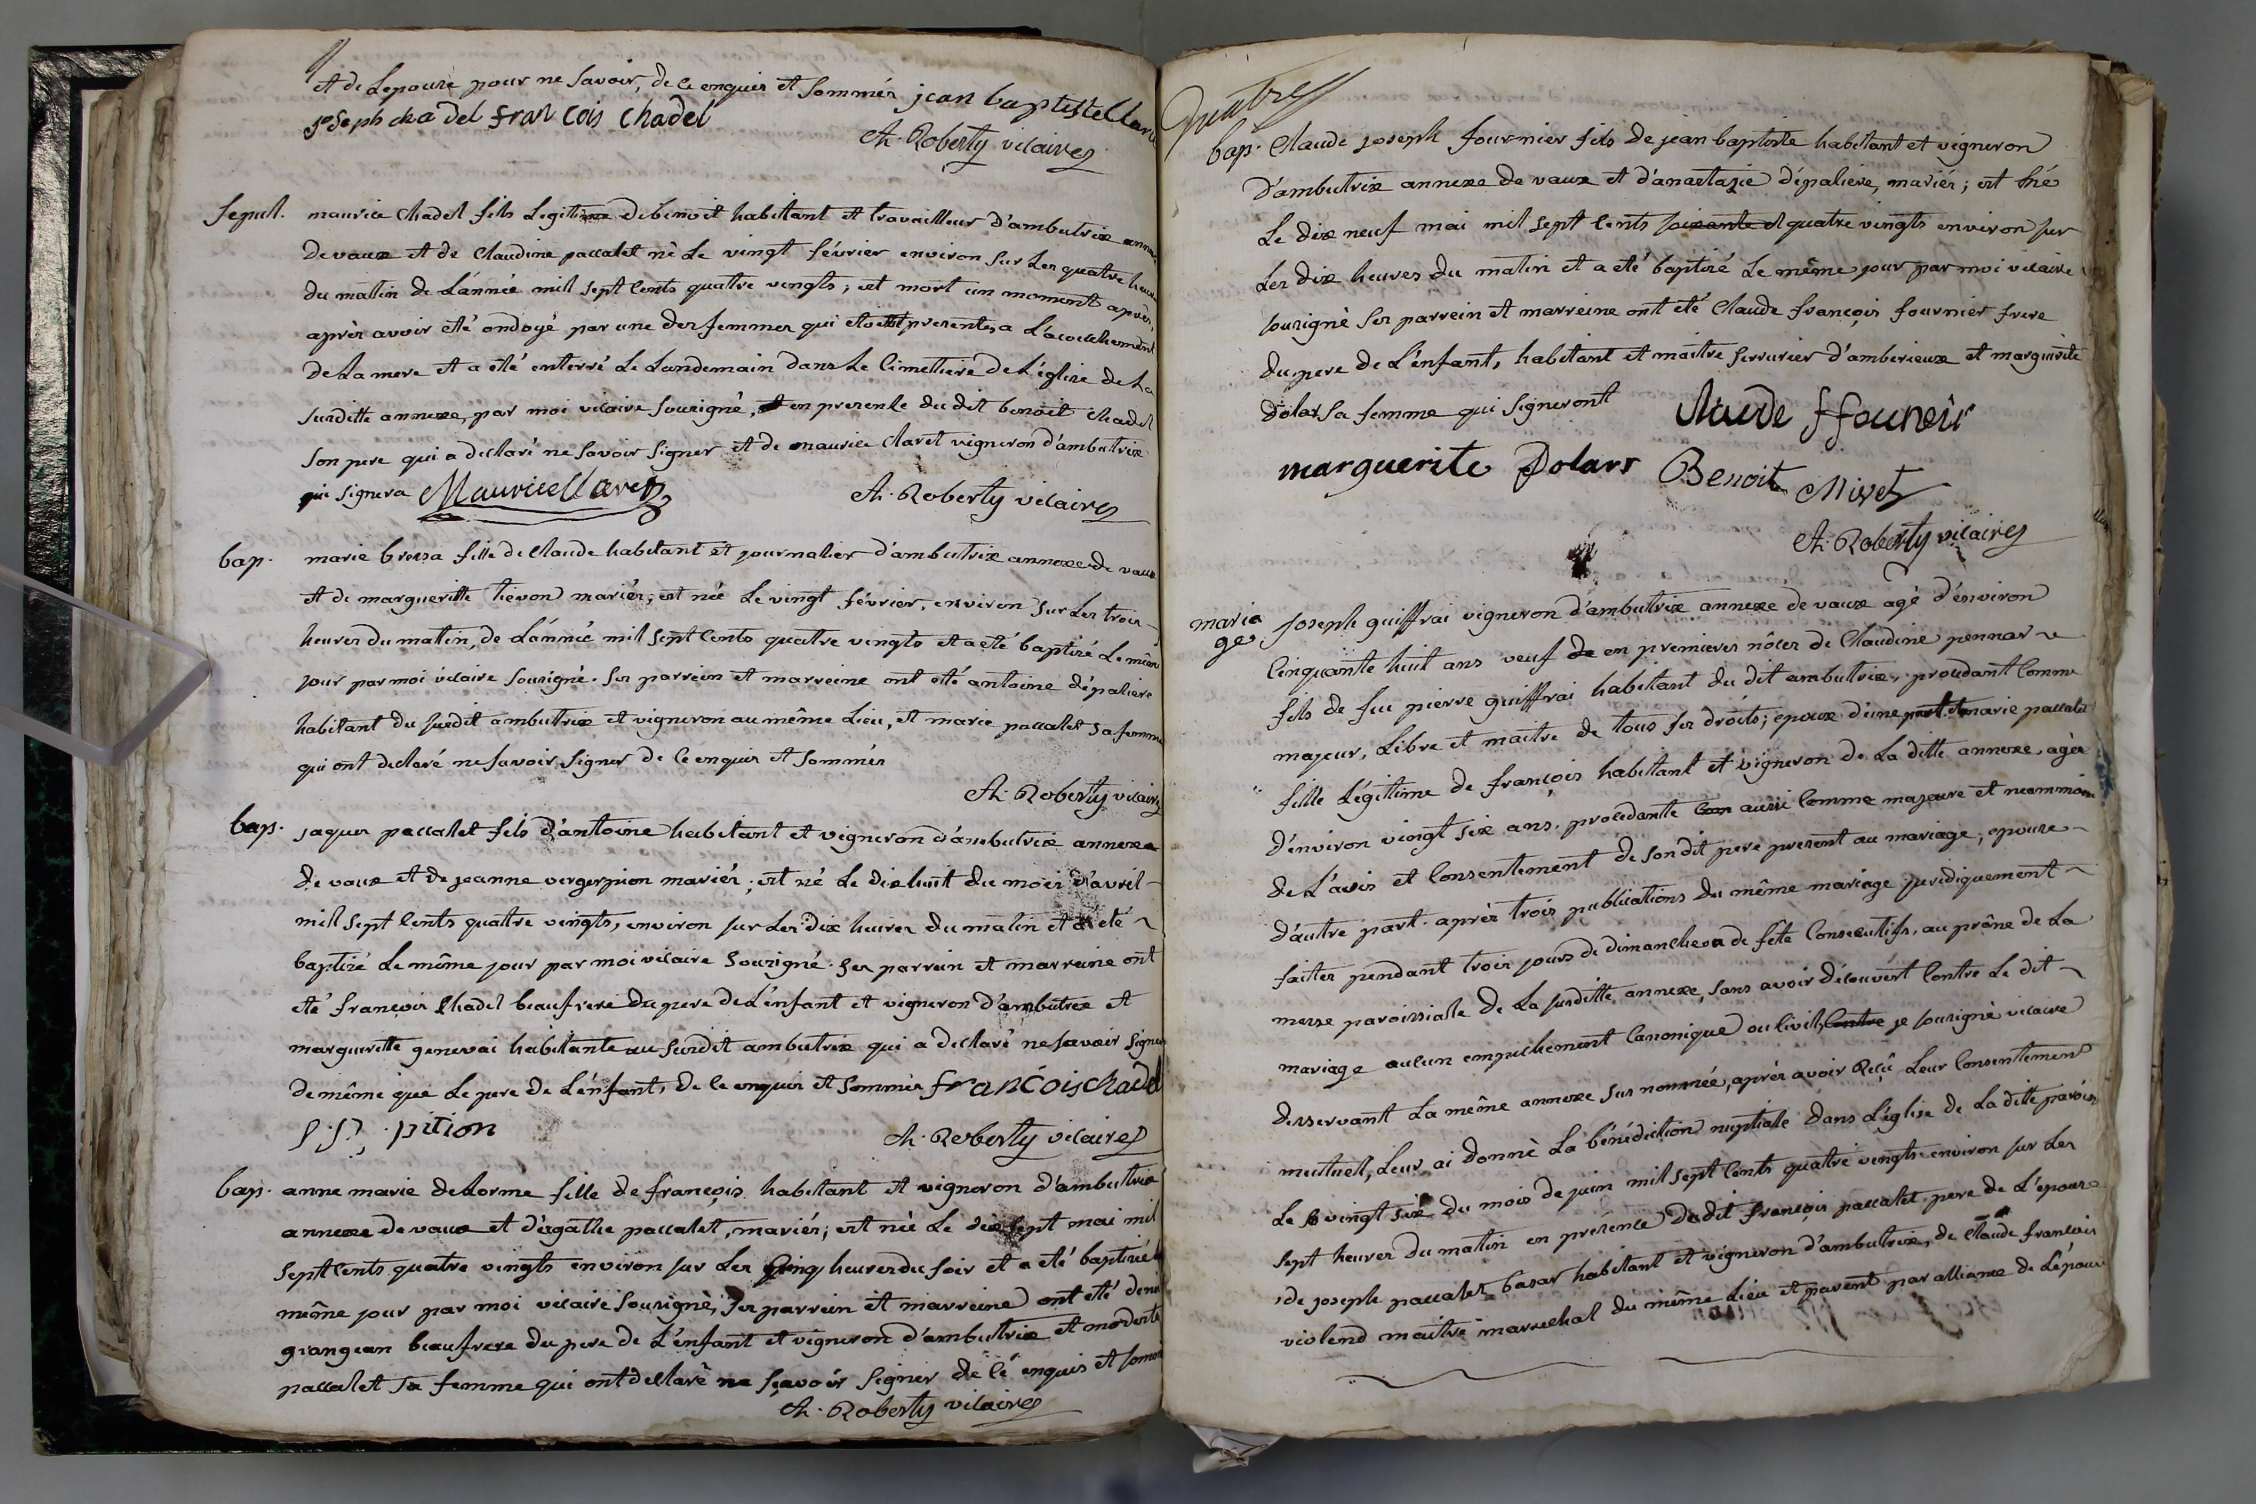 et de Lepouze pour ne Savoir, de ce enquis et Sommés jean baptiste Claret
joseph chadel françois chadel
Ch. Roberty vicaire
Sepul. maurice Chadel fils Legitime de benoit habitant et travailleur d'ambutrix annexe
de vaux et de Claudine paccalet né Le vingt février environ sur Les quatre heures
du matin de L'année mil sept Cents quatre vingts; est mort un moment après,
après avoir eté ondoyé par une des femmes qui etoient presentes a L'acouchement
de La mere et a eté enterré Le Landemain dans Le Cimettiere de L'église de La
Susditte annexe, par moi vicaire Sousigné, en presence du dit benoit Chadel
Son pere qui a declaré ne Savoir Signer et de maurice Claret vigneron d'ambutrix
qui Signera Maurice Claret Ch. Roberty vicaire
bap. marie bressa fille de Claude habitant et journalier d'ambutrix annexe de vaux
et de margueritte tievon mariés; est née Le vingt février, environ sur Les trois
heures du matin, de L'année mil Sept Cents quatre vingts et a eté baptizé Le même
jour par moi vicaire Sousigné. Ses parrein et marreine ont eté antoine dépaliere
habitant du susdit ambutrix et vigneron au même Lieu, et marie paccalet Sa femme
qui ont declaré ne Savoir Signer de ce enquis et Sommés
Ch. Roberty vicaire
bap. jaques paccalet fils d'antoine habitant et vigneron d'ambutrix annexe
de vaux et de jeanne vergerpion mariés; est né Le dixhuit du mois d'avril
mil sept Cents quattre vingts, environ sur Les dix heures du matin et a eté
baptizé Le même jour par moi vicaire Sousigné. Ses parrein et marreine ont
eté françois Chadel beaufrere du pere de L'enfant et vigneron d'ambutrix et
margueritte genevai habitante au Susdit ambutrix qui a declaré ne Savoir Signer
de même que Le pere de L'énfant, de ce enquis et Sommés françois chadel
pition Ch. Roberty vicaire
bap. anne marie deLorme fille de françois habitant et vigneron d'ambutrix
annexe de vaux et d'agathe paccalet, mariés; est née Le dix sept mai mil
Sept Cents quatre vingts environ sur Les Cinq heures du soir et a eté baptizé Le
même jour par moi vicaire Sousigné, Ses parrein et marreine ont eté
grangean beaufrere du pere de L'enfant et vigneron d'ambutrix et modeste
paccalet Sa femme qui ont declaré ne Sçavoir Signer de cé enquis et Sommés
Ch. Roberty vicaire
quatre
bap. Claude joseph fournier fils de jean baptiste habitant et vigneron
d'ambutrix annexe de vaux et d'anastazie dépaliere, mariés; est né
Le dix neuf mai mil Sept Cents soixante et quatre vingts environ sur
Les dix heures du matin et a eté baptizé Le même jour par moi vicaire
sousigné Ses parrein et marreine ont eté Claude françois fournier frere
du pere de L'énfant, habitant et maitre serrurier d'amberieux et marguerite
dolar Sa femme qui Signeront Claude ffourneir
marguerite Dolars Benoit Mivet
Ch. Roberty vicaire
maria
ge joseph guiffrai vigneron d'ambutrix annexe de vaux agé d'énviron
Cinquante huit ans veuf de en premieres nôces de Claudine pennar
fils de feu pierre guiffrai habitant du dit ambutrix, procedant Comme
majeur, Libre et maitre de tous Ses droits; epoux d'une part et marie paccalet
fille Légittime de françois habitant et vigneron de La ditte annexe, agée
d'énviron vingt six ans, procedante Com aussi Comme majeure et neammoins
de L'avis et Consentement de Son dit pere present au mariage; epouze
d'autre part. après trois publications du même mariage juridiquement
faites pendant trois jours de dimanche ou de fête Consecutifs, au prône de La
messe paroissiale de La susditte annexe, Sans avoir découvert Contre Le dit
mariage aucun empechement Canonique ou Civil, Contre je sousigné vicaire
desservant La même annexe Sus nommée, après avoir Reçû Leur Consentement
mutuel, Leur ai donné La bénédiction nuptiale dans L'église de La ditte paroisse
Le vingt six du mois de juin mil sept Cents quatre vingts environ sur Les
sept heures du matin en présence dudit françois paccalet pere de L'epouze
de joseph paccalet basar habitant et vigneron d'ambutrix, de Claude françois
violend maitre marrechal du même Lieu et parent par alliance de L'épouze